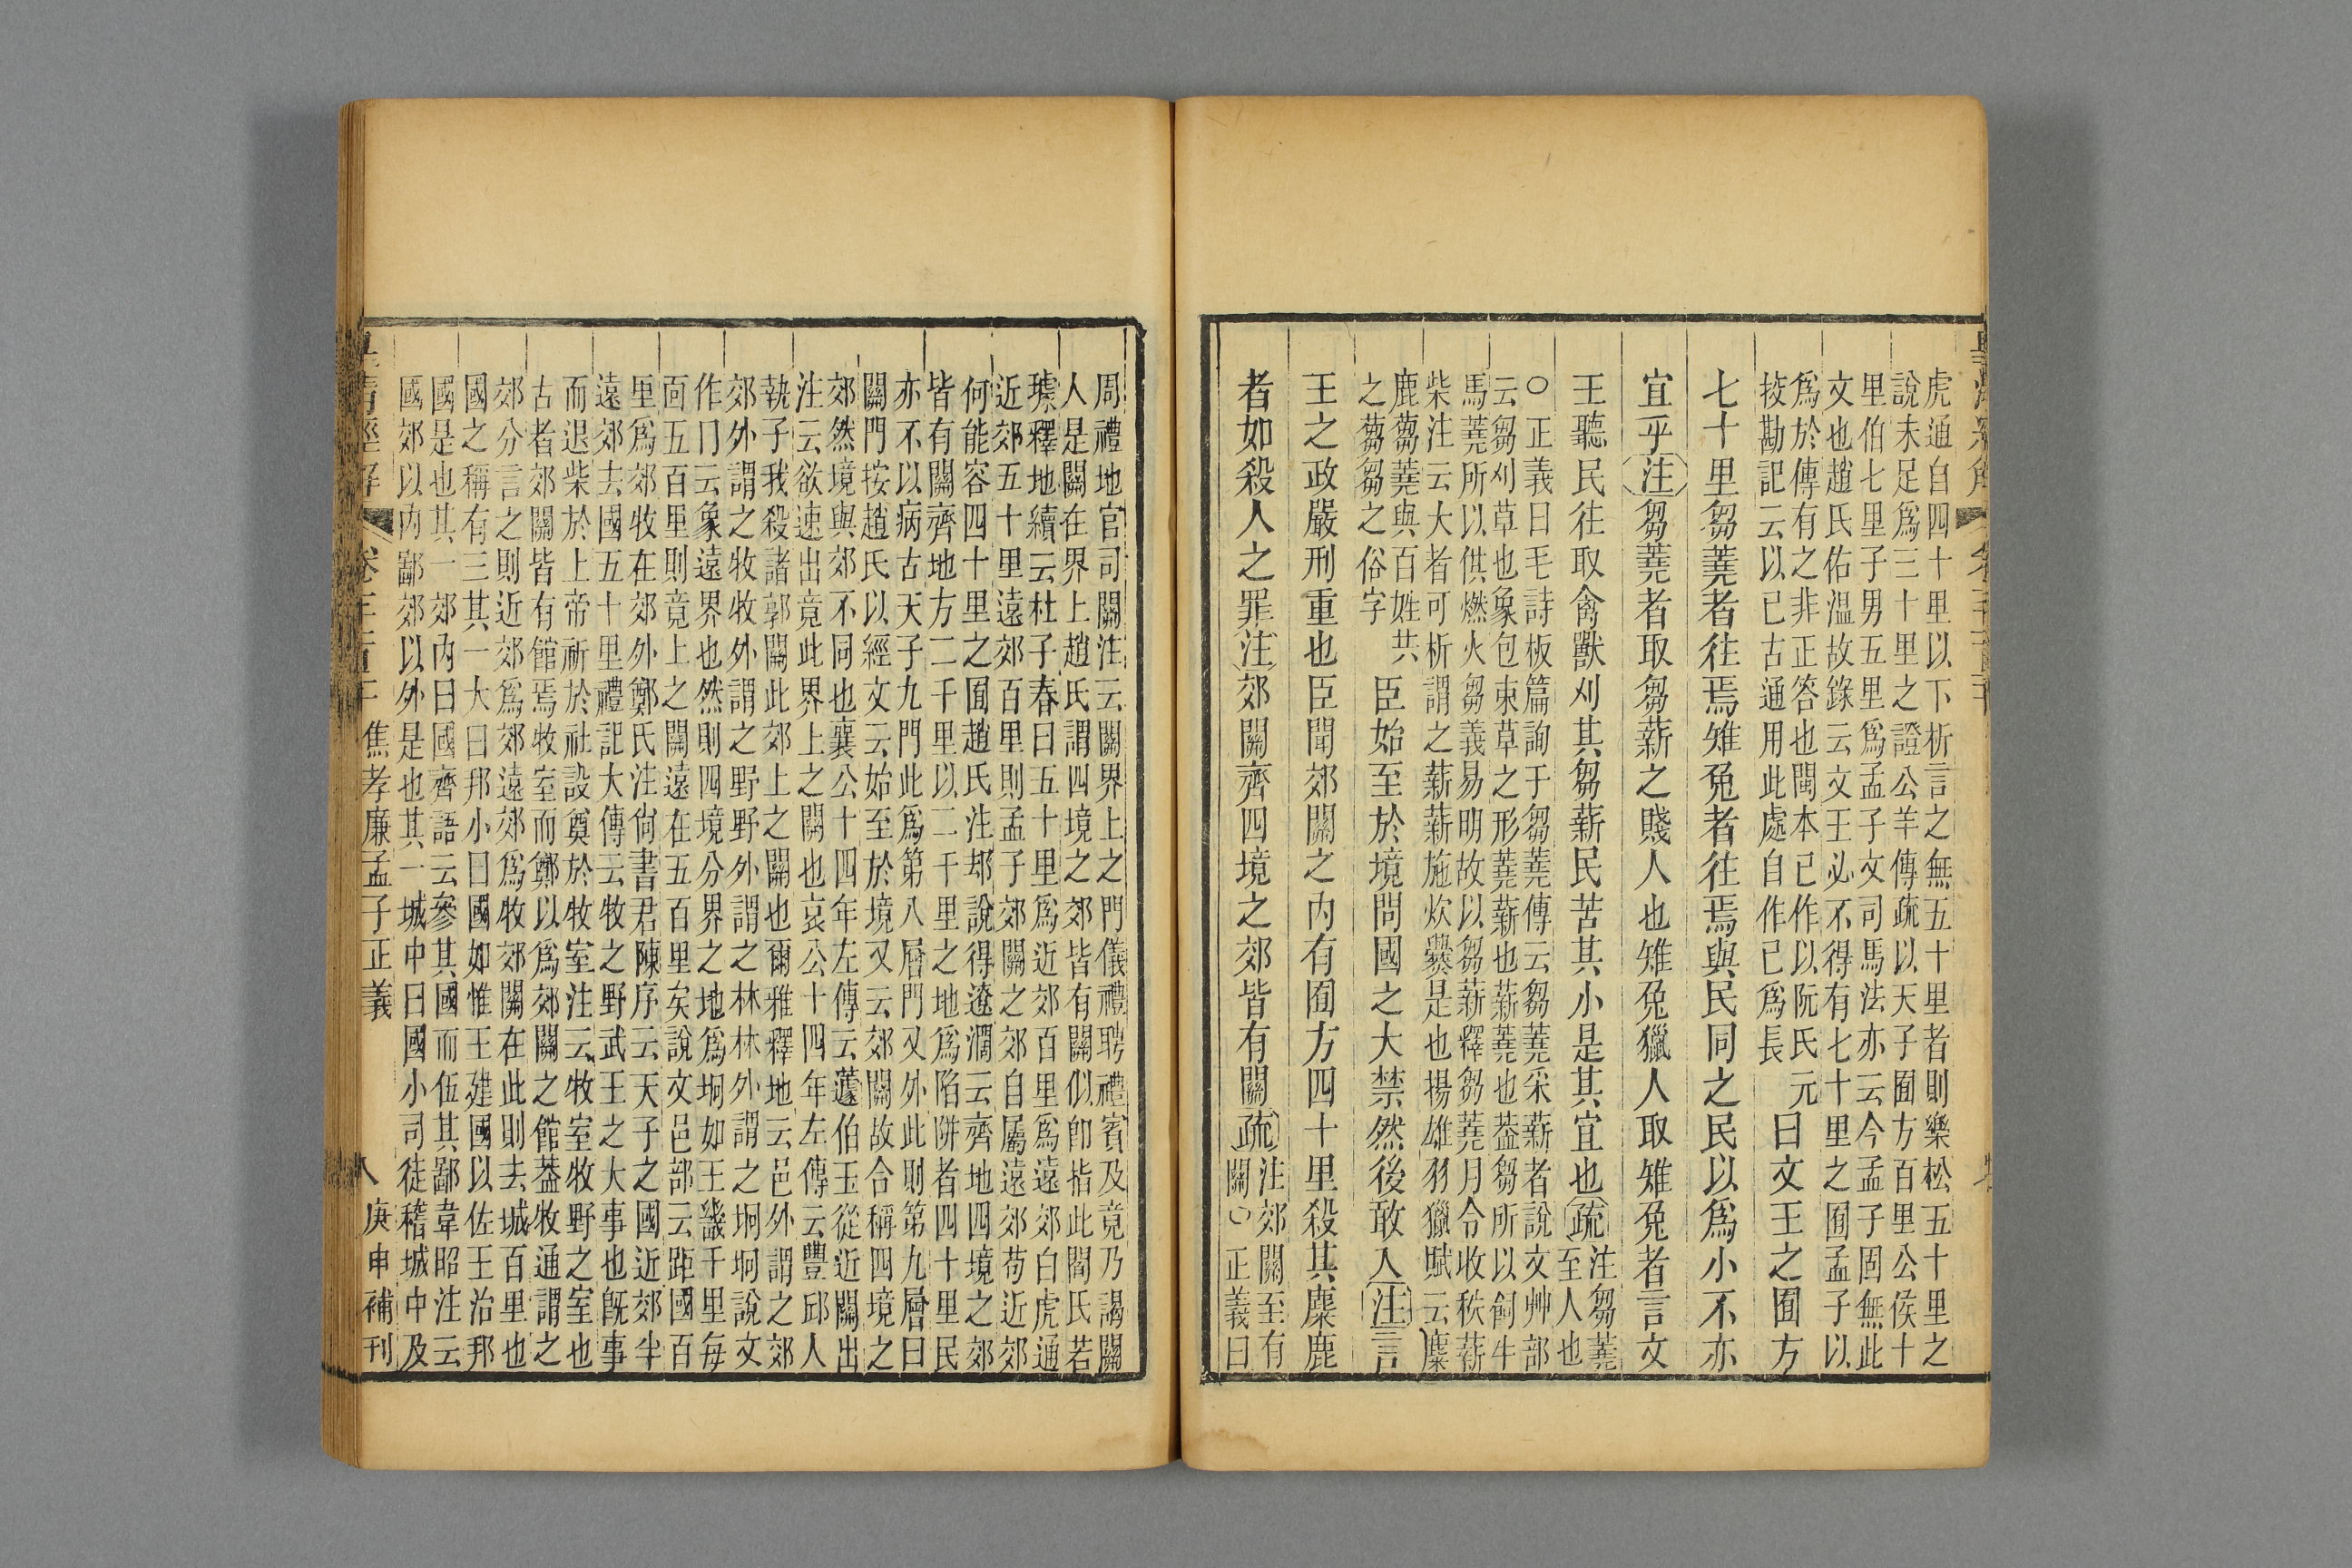 虎通自四十里以下析言之無五十里者則樂松五十里之
說未足爲三十里之證公羊傳疏以天子囿方百里公侯十
里伯七里子男五里爲孟子文司馬法亦云今孟子固無此
文也趙氏佑溫故錄云文王必不得有七十里之囿孟子以
爲於傳有之非正答也閩本已作以阮氏元
挍勘記云以已古通用此處自作已爲長
曰文王之囿方
七十里芻蕘者往焉雉兔者往焉與民同之民以爲小不亦
宜乎注芻蕘者取芻薪之賤人也雉兔獵人取雉兔者言文
王聽民往取禽獸刈其芻薪民苦其小是其宜也疏
注芻蕘
至人也
○正義曰毛詩板篇詢于芻蕘傳云芻蕘采薪者說文艸部
云芻刈草也象包束草之形蕘薪也薪蕘也葢芻所以飼牛
馬蕘所以供燃火芻義易明故以芻薪釋芻蕘月令收秩薪
柴注云大者可析謂之薪薪施炊爨是也揚雄羽獵賦云麋
鹿蒭蕘與百姓共
之蒭芻之俗字
臣始至於境問國之大禁然後敢入注言
王之政嚴刑重也臣聞郊關之內有囿方四十里殺其麋鹿
者如殺人之罪注郊關齊四境之郊皆有關疏
注郊關至有
關○正義曰
周禮地官司關注云關界上之門儀禮聘禮賓及竟乃謁關
人是關在界上趙氏謂四境之郊皆有關似卽指此閻氏若
璩釋地續云杜子春曰五十里爲近郊百里爲遠郊白虎通
近郊五十里遠郊百里則孟子郊關之郊自屬遠郊苟近郊
何能容四十里之囿趙氏注郊說得遼濶云齊地四境之郊
皆有關齊地方二千里以二千里之地爲陷阱者四十里民
亦不以病古天子九門此爲第八層門又外此則第九層曰
關門按趙氏以經文云始至於境又云郊關故合稱四境之
郊然境與郊不同也襄公十四年左傳云蘧伯玉從近關出
注云欲速出竟此界上之關也哀公十四年左傳云豐邱人
執子我殺諸郭關此郊上之關也爾雅釋地云邑外謂之郊
郊外謂之牧牧外謂之野野外謂之林林外謂之坰坰說文
作冂云象遠界也然則四境分界之地爲坰如王畿千里每
面五百里則竟上之關遠在五百里矣說文邑部云距國百
里爲郊牧在郊外鄭氏注尙書君陳序云天子之國近郊半
遠郊去國五十里禮記大傳云牧之野武王之大事也旣事
而退柴於上帝祈於社設奠於牧室注云牧室牧野之室也
古者郊關皆有館焉牧室而鄭以爲郊關之館葢牧通謂之
郊分言之則近郊爲郊遠郊爲牧郊關在此則去城百里也
國之稱有三其一大曰邦小曰國如惟王建國以佐王治邦
國是也其一郊內曰國齊語云參其國而伍其鄙韋昭注云
國郊以內鄙郊以外是也其一城中曰國小司徒稽城中及
皇淸經解 卷千百二十 焦孝廉孟子正義 八 庚申補刊